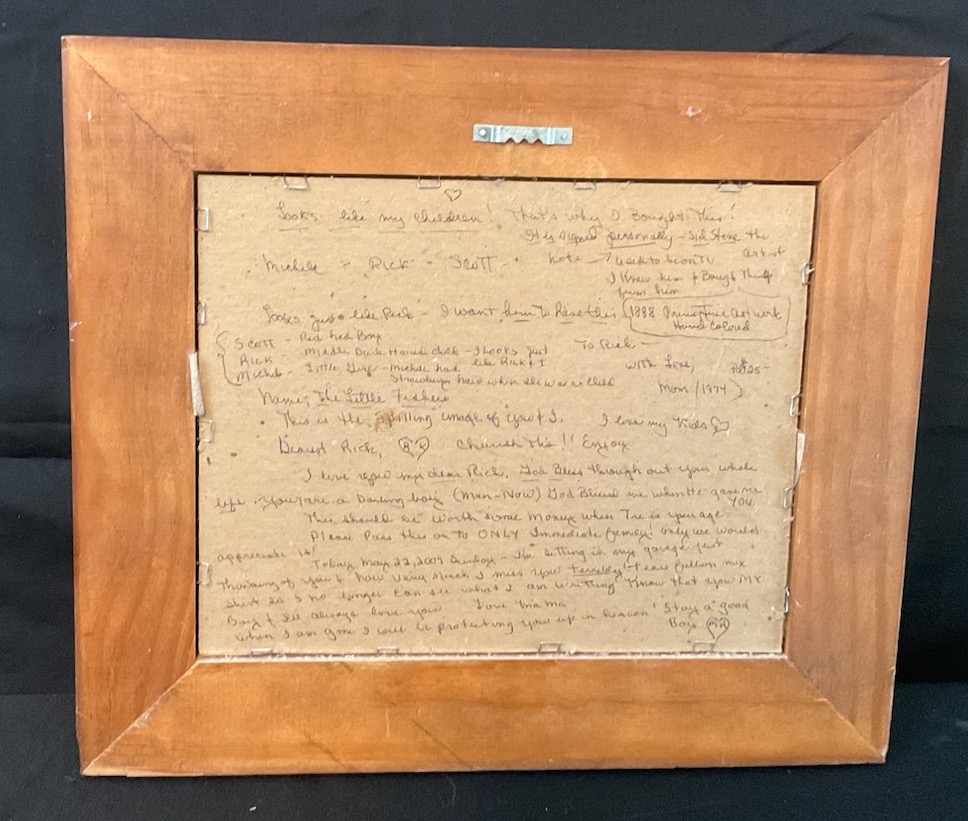 Looks like my children! That's why I Bought This!
It is signed personally - Sid Steve the artist
Michele - Rick - Scott. note → used to be on TV
I Knew him + Bought Things from him
Looks just like Rick - I want him to have this (1888 Primitive artwork
Hand colored
Scott - Red hed Boy To Rick -
Rick - Middle Dark Haired child - Looks just like Rick + I
Michele - Little Girl - Michele had Strawberry hair when she was a child
With Love,
Mom /1974)
Name, The Little Fishers
This is the spilling image of you + I. I love my Kids
Dearest Rick, Cherish this!! Enjoy
I love you my dear Rick, God Bless through out your whole
life. You are a Darling boy (Man-Now) God Blessed me when He gave me
You.
This should be worth some money when Tre is your age
Please Pass this on to ONLY Immediate family! Only we would
appreciate it!
Today, May 2009 Sunday - I'm sitting in my garage just
Thinking of you & how very much I miss you terribly! tears full on my
shirt so I no longer can see what I am writting Know that you MY
Boy + I'll always love you Love Mama
when I am gone I will be protecting you up in heaven! Stay a good
Boy